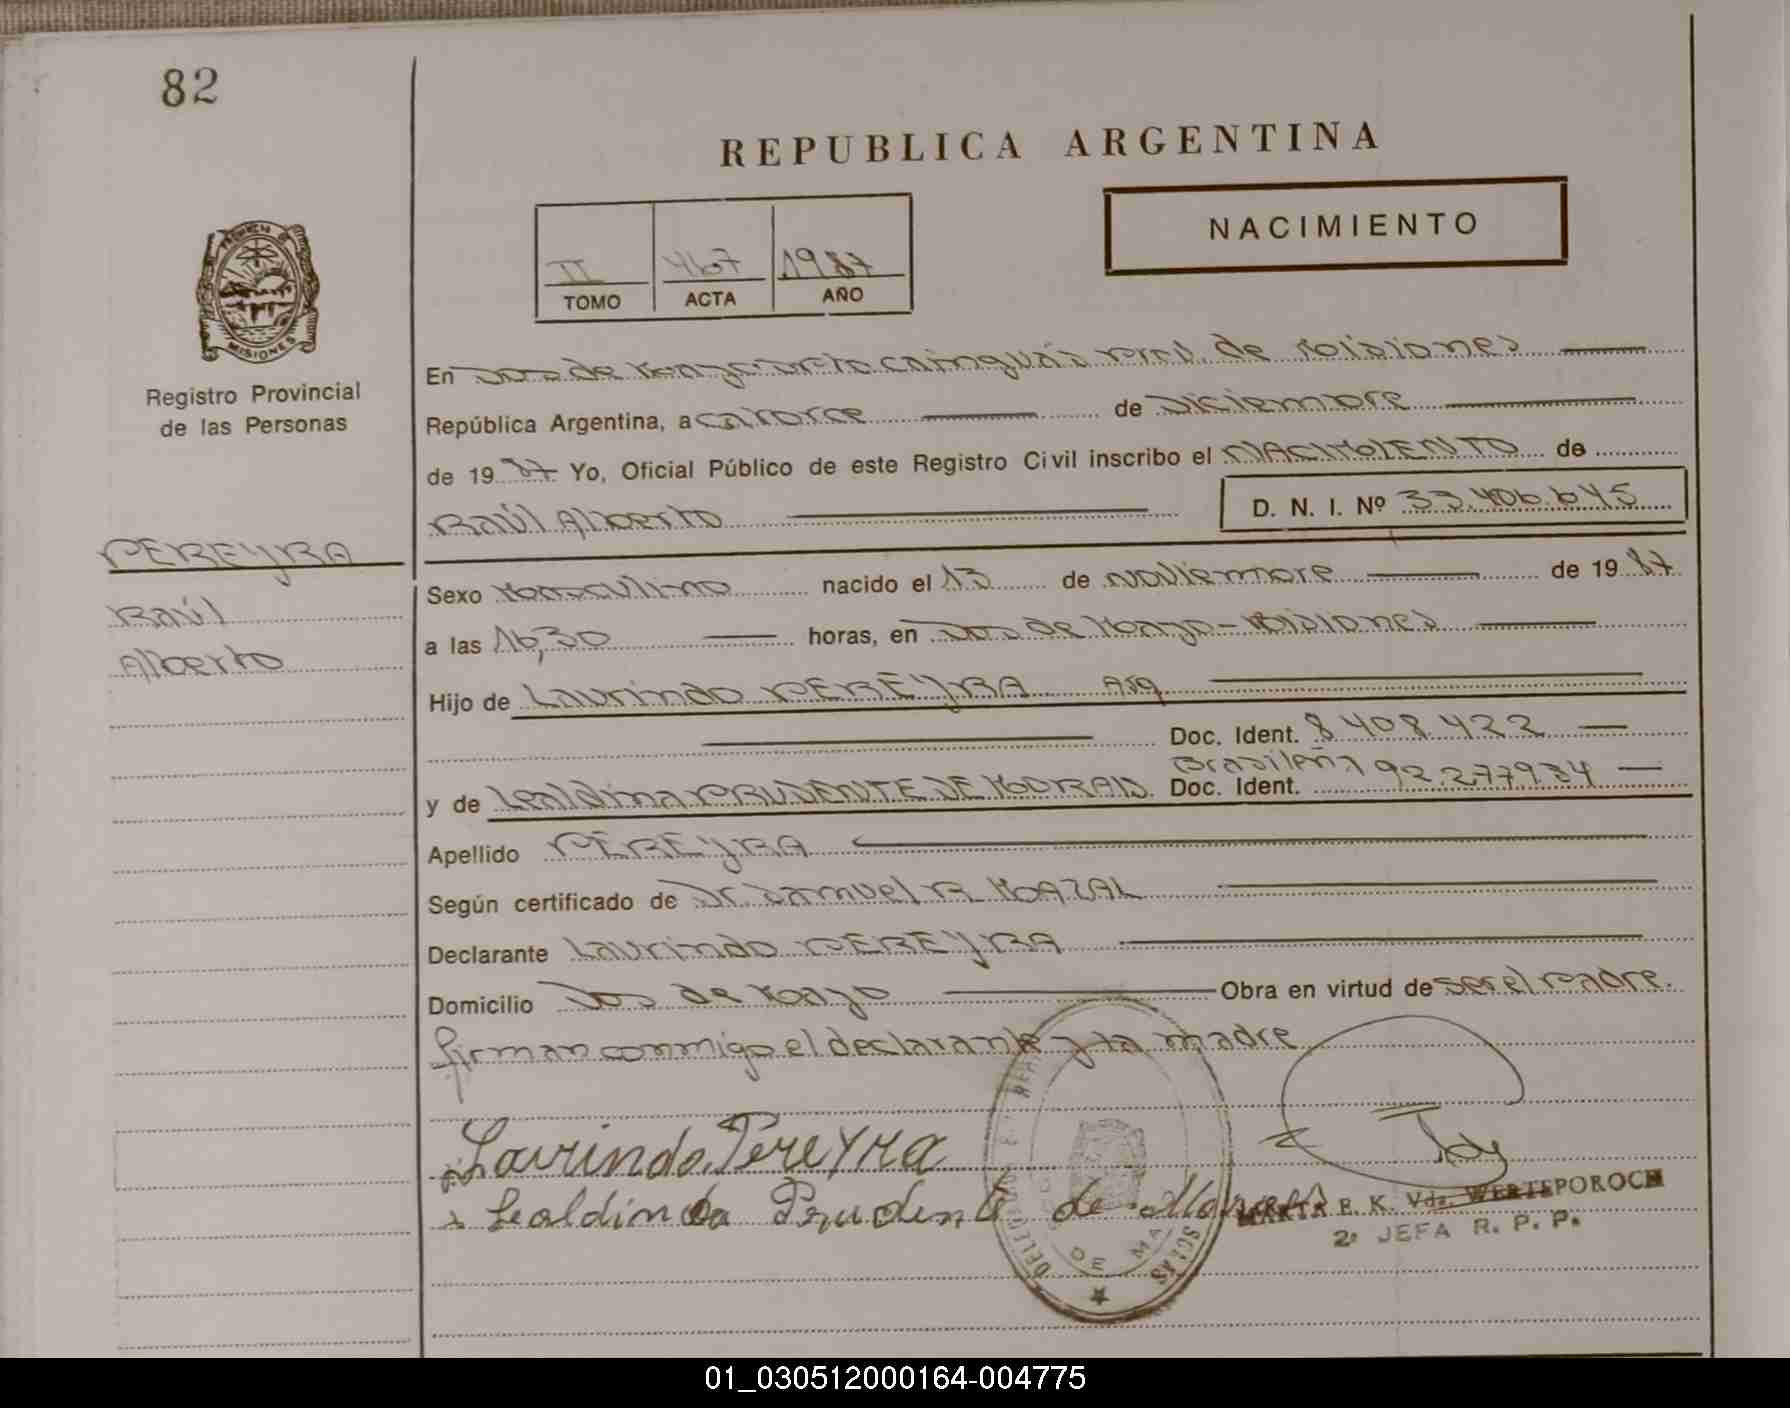 82
REPUBLICA ARGENTINA
NACIMIENTO
II 467 1987
TOMO ACTA AÑO
PROVINCIA DE
MISIONES
Registro Provincial
de las Personas
En Dos de Mayo. Dpto Cainguás Prov. de Misiones
República Argentina, a catorce de Diciembre
de 1987 Yo, Oficial Público de este Registro Civil inscribo el NACIMIENTO de
Raúl Alberto D. N. I. Nº 33.406.645
PEREYRA
Raúl
Alberto
Sexo Masculino nacido el 13 de Noviembre de 1987
a las 16,30 horas, en Dos de Mayo - Misiones
Hijo de Laurindo PEREYRA Arg
Doc. Ident. 8 408 422
Brasileña
y de Lealdina PRUDENTE DE MORAIS Doc. Ident. 92.277934
Apellido PEREYRA
Según certificado de Dr. Samuel R. MAZAL
Declarante Laurindo PEREYRA
Domicilio Dos de Mayo Obra en virtud de ser el padre.
firman conmigo el declarante y la madre
Laurindo Pereyra
Prudente de
MARTA E. K. Vda. WERTEPOROCH
2º JEFA R. P. P.
01_030512000164-004775